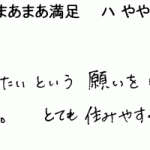 まあまあ満足 ハ やや
たい という 願いを
。 とても 住みやす